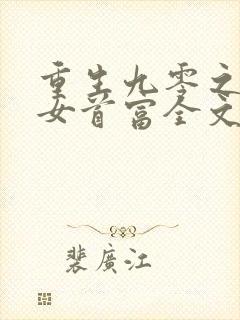 重生九零之
女首富全文
裴廣江